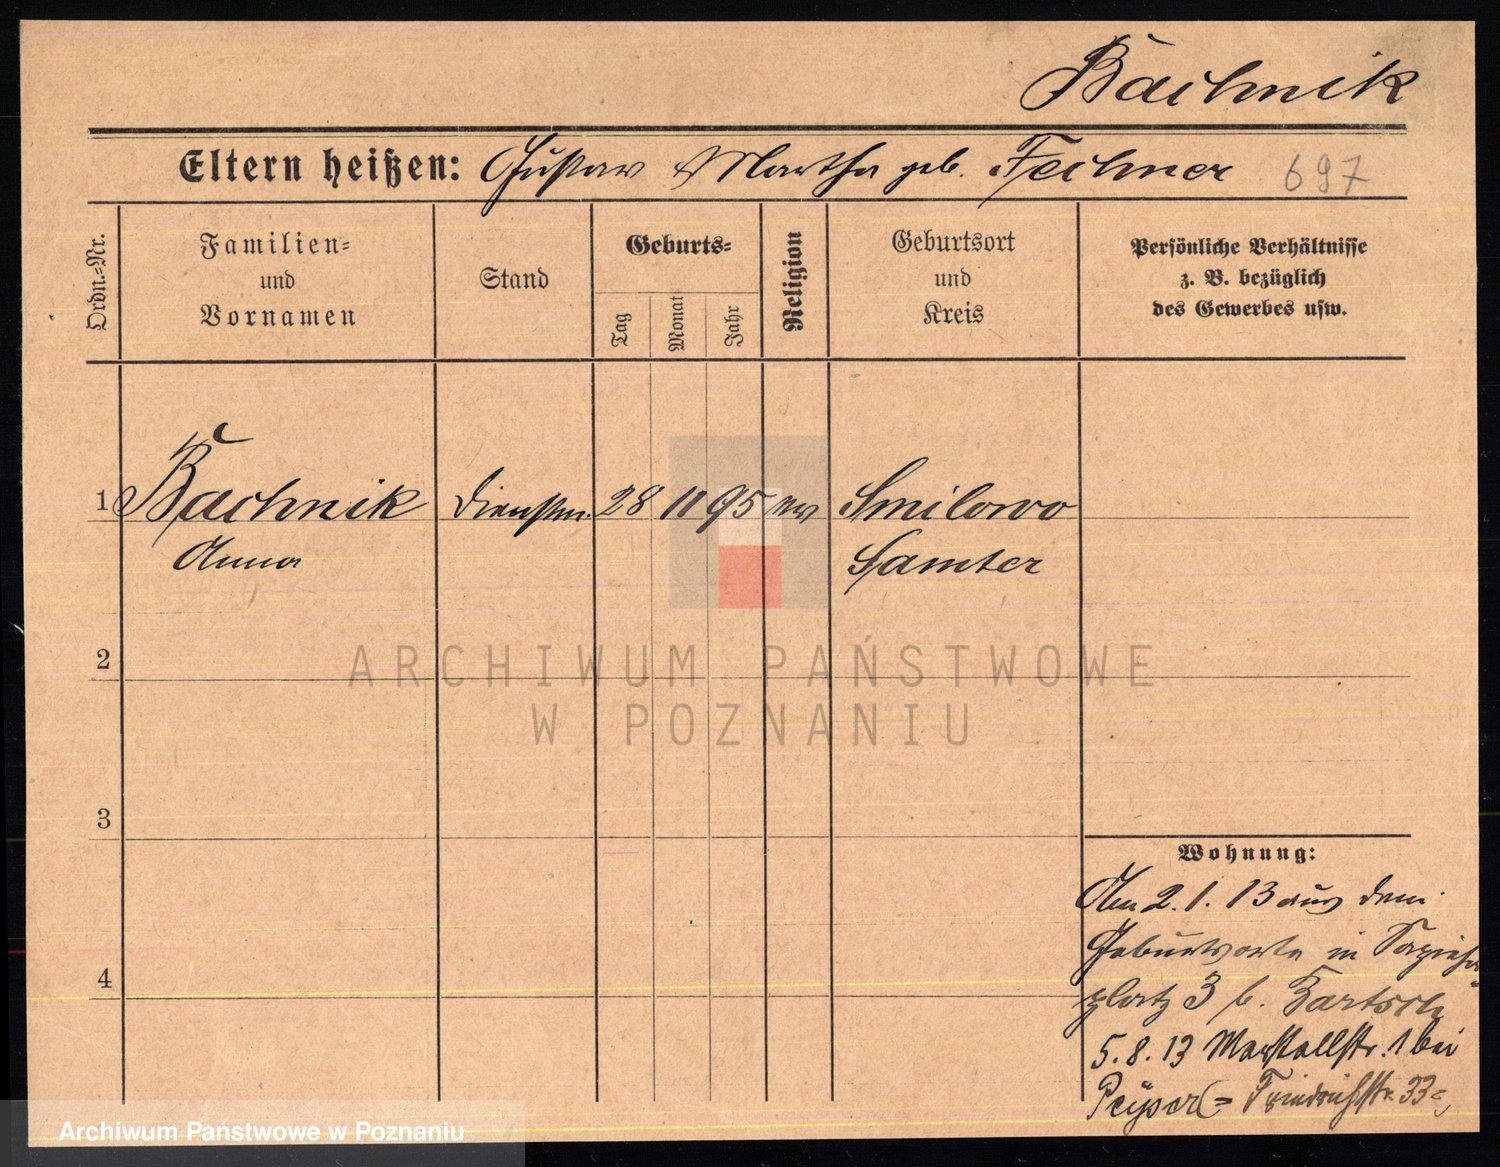 Bachnik
Eltern heißen: Gustav Martha geb. Fechner 697
Ordn.=Nr.
Familien=
und
Vornamen
Stand
Geburts=
Tag
Monat
Jahr
Religion
Geburtsort
und
Kreis
Persönliche Verhältnisse
z. B. bezüglich
des Gewerbes usw.
1 Bachnik Dienstm. 28 11 95 ev Smilowo
Anna Samter
2
3
4
ARCHIWUM PAŃSTWOWE
W POZNANIU
Wohnung:
Am 2. 1. 13 aus dem
Geburtsorte in Sapieha
platz 3 b. Bartsch
5. 8. 13 Marstallstr. 1 bei
Peyser (= Friedrichstr. 33=
Archiwum Państwowe w Poznaniu